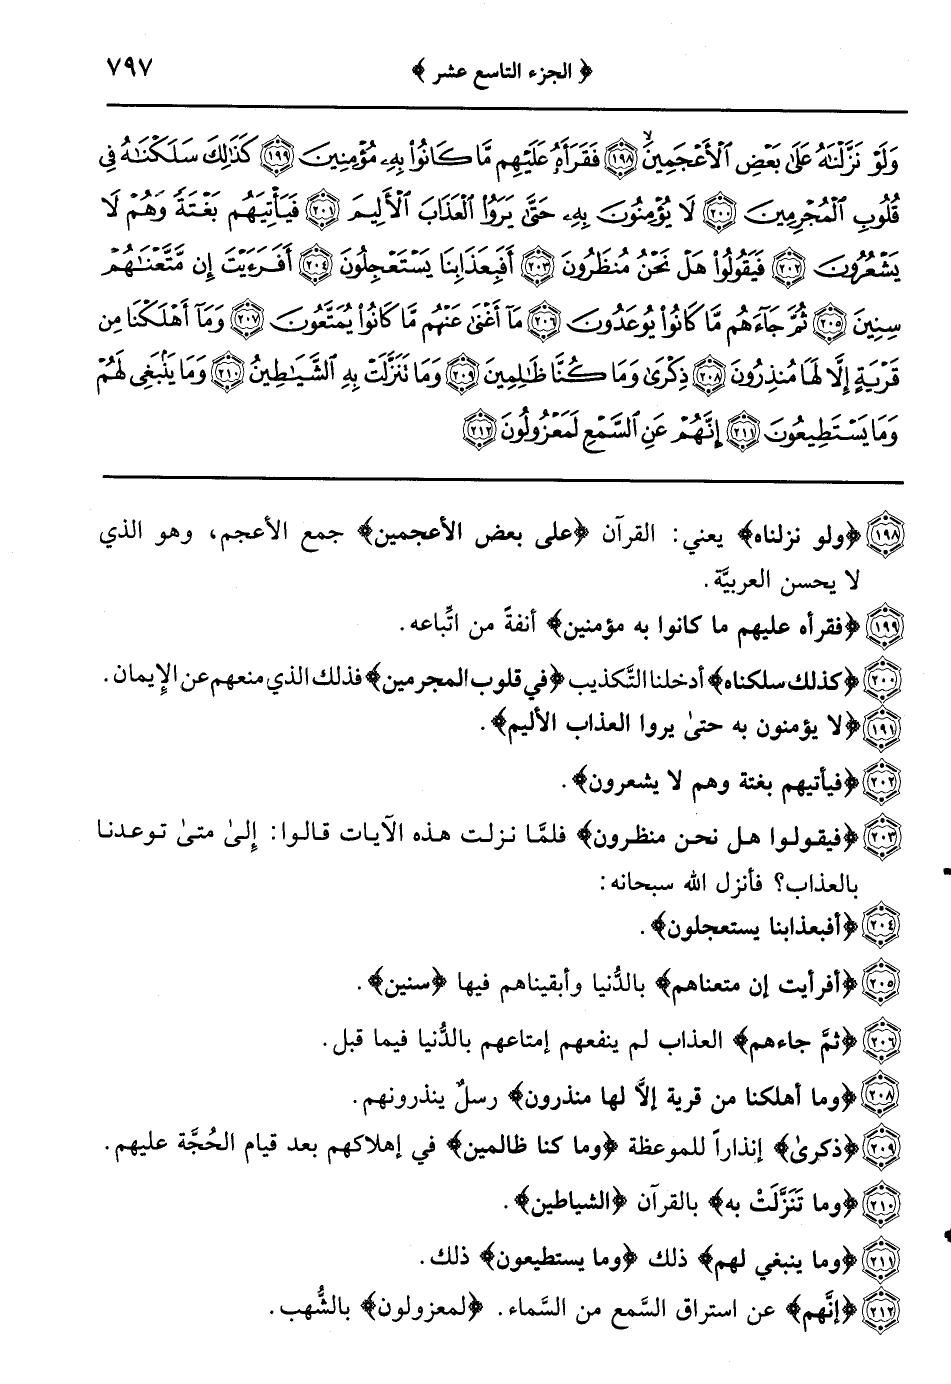 ﴿ الجزء التاسع عشر ﴾ ٧٩٧
وَلَوْ نَزَّلْنَٰهُ عَلَىٰ بَعْضِ ٱلْأَعْجَمِينَ ۙ ١٩٨ فَقَرَأَهُۥ عَلَيْهِم مَّا كَانُوا۟ بِهِۦ مُؤْمِنِينَ ١٩٩ كَذَٰلِكَ سَلَكْنَٰهُ فِى
قُلُوبِ ٱلْمُجْرِمِينَ ٢٠٠ لَا يُؤْمِنُونَ بِهِۦ حَتَّىٰ يَرَوُا۟ ٱلْعَذَابَ ٱلْأَلِيمَ ٢٠١ فَيَأْتِيَهُم بَغْتَةً وَهُمْ لَا
يَشْعُرُونَ ٢٠٢ فَيَقُولُوا۟ هَلْ نَحْنُ مُنظَرُونَ ٢٠٣ أَفَبِعَذَابِنَا يَسْتَعْجِلُونَ ٢٠٤ أَفَرَءَيْتَ إِن مَّتَّعْنَٰهُمْ
سِنِينَ ٢٠٥ ثُمَّ جَآءَهُم مَّا كَانُوا۟ يُوعَدُونَ ٢٠٦ مَآ أَغْنَىٰ عَنْهُم مَّا كَانُوا۟ يُمَتَّعُونَ ٢٠٧ وَمَآ أَهْلَكْنَا مِن
قَرْيَةٍ إِلَّا لَهَا مُنذِرُونَ ٢٠٨ ذِكْرَىٰ وَمَا كُنَّا ظَٰلِمِينَ ٢٠٩ وَمَا تَنَزَّلَتْ بِهِ ٱلشَّيَٰطِينُ ٢١٠ وَمَا يَنۢبَغِى لَهُمْ
وَمَا يَسْتَطِيعُونَ ٢١١ إِنَّهُمْ عَنِ ٱلسَّمْعِ لَمَعْزُولُونَ ٢١٢
١٩٨ ﴿ولو نزلناه﴾ يعني: القرآن ﴿على بعض الأعجمين﴾ جمع الأعجم، وهو الذي
لا يحسن العربيَّة.
١٩٩ ﴿فقرأه عليهم ما كانوا به مؤمنين﴾ أنفةً من اتِّباعه.
٢٠٠ ﴿كذلك سلكناه﴾ أدخلنا التَّكذيب ﴿في قلوب المجرمين﴾ فذلك الذي منعهم عن الإِيمان.
١٩١ ﴿لا يؤمنون به حتىٰ يروا العذاب الأليم﴾.
٢٠٢ ﴿فيأتيهم بغتة وهم لا يشعرون﴾.
٢٠٣ ﴿فيقولوا هل نحن منظرون﴾ فلمَّا نزلت هذه الآيات قالوا: إِلىٰ متىٰ توعدنا
بالعذاب؟ فأنزل الله سبحانه:
٢٠٤ ﴿أفبعذابنا يستعجلون﴾.
٢٠٥ ﴿أفرأيت إن متعناهم﴾ بالدُّنيا وأبقيناهم فيها ﴿سنين﴾.
٢٠٦ ﴿ثمَّ جاءهم﴾ العذاب لم ينفعهم إمتاعهم بالدُّنيا فيما قبل.
٢٠٨ ﴿وما أهلكنا من قرية إلاَّ لها منذرون﴾ رسلٌ ينذرونهم.
٢٠٩ ﴿ذكرىٰ﴾ إنذاراً للموعظة ﴿وما كنا ظالمين﴾ في إهلاكهم بعد قيام الحُجَّة عليهم.
٢١٠ ﴿وما تَنَزَّلَتْ به﴾ بالقرآن ﴿الشياطين﴾.
٢١١ ﴿وما ينبغي لهم﴾ ذلك ﴿وما يستطيعون﴾ ذلك.
٢١٢ ﴿إنَّهم﴾ عن استراق السَّمع من السَّماء. ﴿لمعزولون﴾ بالشُّهب.